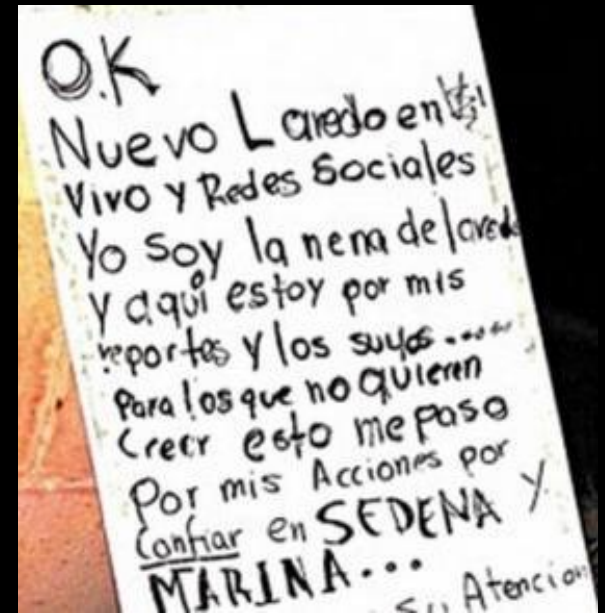 O.K
Nuevo Laredo en
Vivo y Redes Sociales
Yo soy la nena de laredo
y aqui estoy por mis
reportes y los suyos......
Para los que no quieren
Creer esto me paso
Por mis Acciones por
Confiar en SEDENA y
MARINA...
Su Atencion